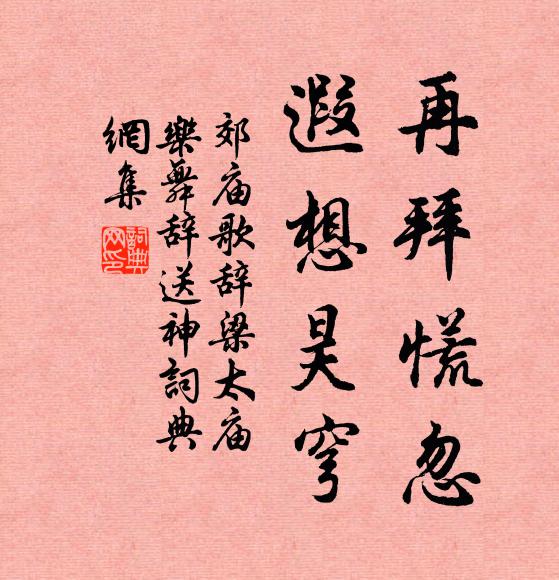 再拜慌忽
遐想昊穹
郊庙歌辞梁太庙
樂舞辞送神詞典
網集
詞典
网印